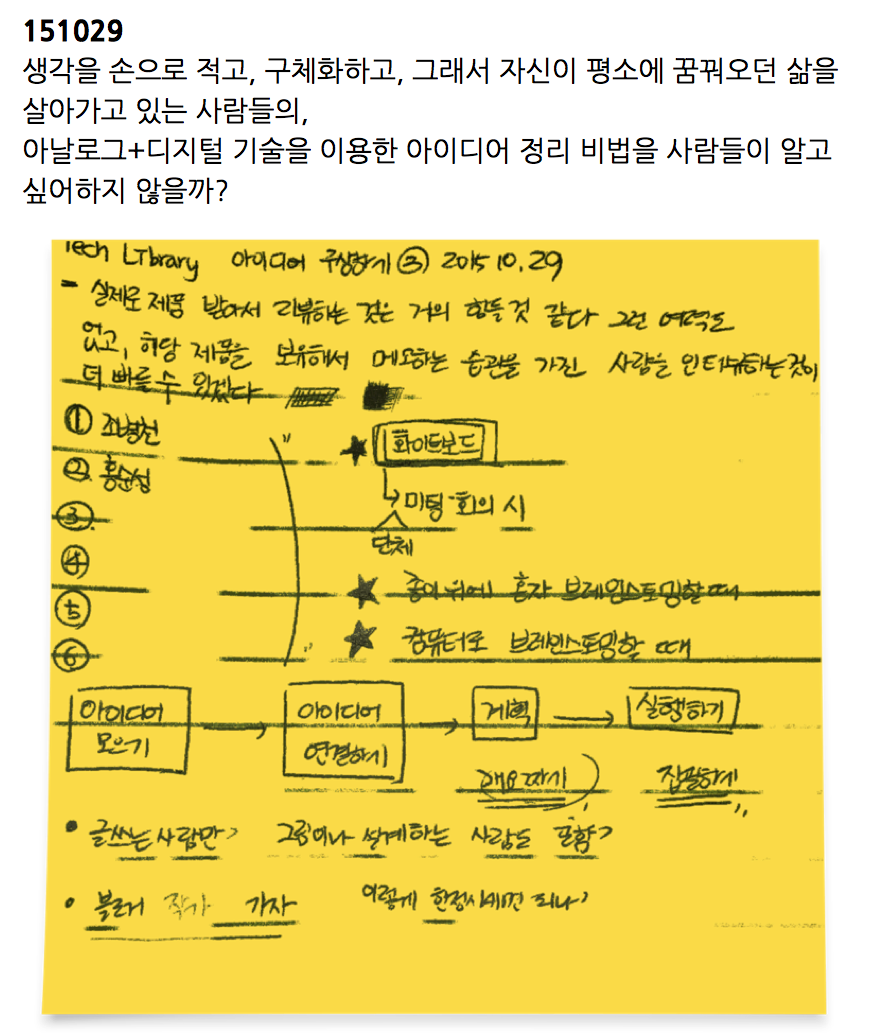 151029
생각을 손으로 적고, 구체화하고, 그래서 자신이 평소에 꿈꿔오던 삶을
살아가고 있는 사람들의,
아날로그+디지털 기술을 이용한 아이디어 정리 비법을 사람들이 알고
싶어하지 않을까?
Tech LTbrary 아이디어 구상하기 ③ 2015.10.29
- 실제로 제품 받아서 리뷰하는 것은 거의 힘들것 같다 그런 여력도
없고, 해당 제품을 보유해서 메모하는 습관을 가진 사람을 인터뷰하는것이
더 빠를 수 있겠다
① 조병천
② 홍순성
③
④
⑤
⑥
★ 화이트보드
미팅·회의 시
단체
★ 종이 위에 혼자 브레인스토밍할 때
★ 컴퓨터로 브레인스토밍할 때
아이디어 모으기 → 아이디어 연결하기 → 계획 → 실행하기
개요짜기 집필하게
• 글쓰는 사람만? 그림이나 설계하는 사람도 포함?
• 블로거 작가 기자 이렇게 한정시키면 되나?